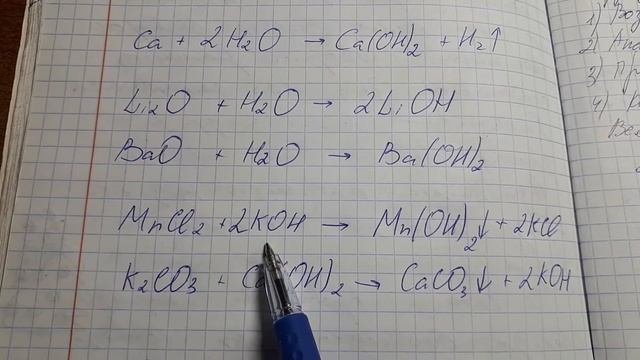 Ca + 2H2O → Ca(OH)2 + H2↑
Li2O + H2O → 2LiOH
BaO + H2O → Ba(OH)2
MnCl2 + 2KOH → Mn(OH)2↓ + 2KCl
K2CO3 + Ca(OH)2 → CaCO3↓ + 2KOH
1)
2)
3)
4)